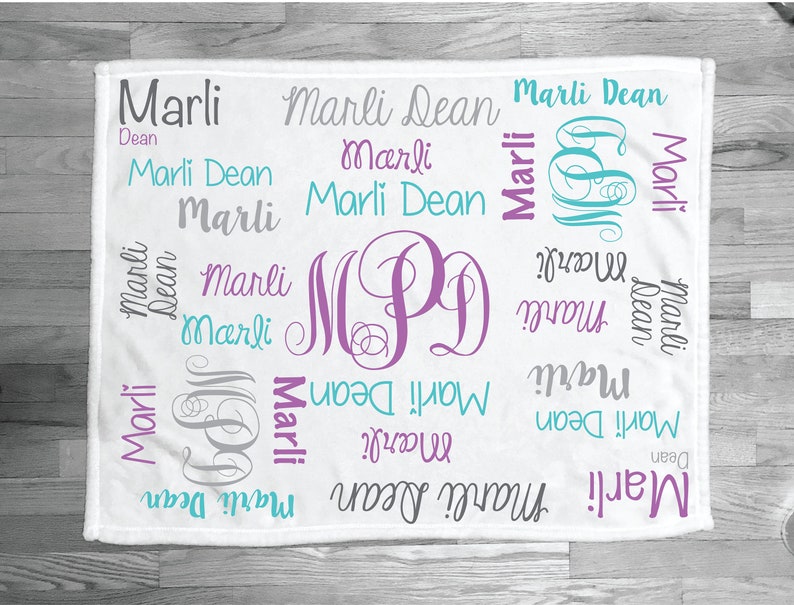 Marli
Dean
Marli Dean
Marli Dean
Marli
Marli Dean
Marli
Marli Dean
Marli
MPD
Marli
Marli
Dean
Marli
Marli
MPD
Marli
Marli
Marli
Dean
Marli
Marli
MPD
Marli
Marli Dean
Marli
Marli Dean
Marli
Dean
Marli
Marli Dean
Marli Dean